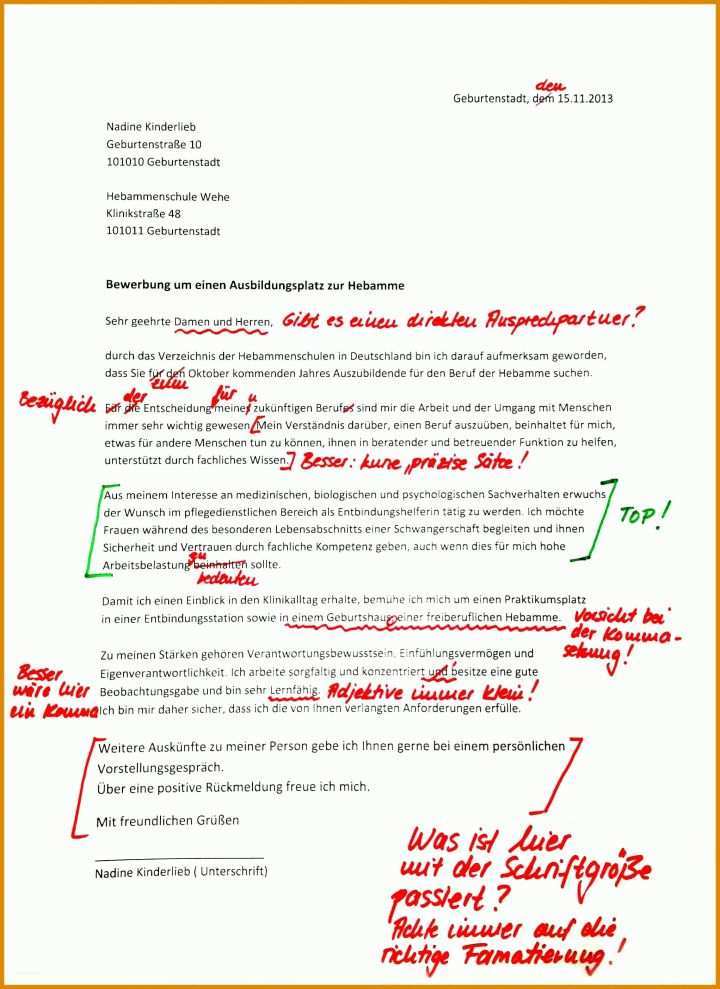 den
Geburtenstadt, dem 15.11.2013
Nadine Kinderlieb
Geburtenstraße 10
101010 Geburtenstadt
Hebammenschule Wehe
Klinikstraße 48
101011 Geburtenstadt
Bewerbung um einen Ausbildungsplatz zur Hebamme
Sehr geehrte Damen und Herren, Gibt es einen direkten Ansprechpartner?
durch das Verzeichnis der Hebammenschulen in Deutschland bin ich darauf aufmerksam geworden,
dass Sie für den Oktober kommenden Jahres Auszubildende für den Beruf der Hebamme suchen.
zum
Bezüglich der für u
Für die Entscheidung meines zukünftigen Berufes sind mir die Arbeit und der Umgang mit Menschen
immer sehr wichtig gewesen. [Mein Verständnis darüber, einen Beruf auszuüben, beinhaltet für mich,
etwas für andere Menschen tun zu können, ihnen in beratender und betreuender Funktion zu helfen,
unterstützt durch fachliches Wissen.] Besser: kurze, präzise Sätze!
Aus meinem Interesse an medizinischen, biologischen und psychologischen Sachverhalten erwuchs
der Wunsch im pflegedienstlichen Bereich als Entbindungshelferin tätig zu werden. Ich möchte
TOP!
Frauen während des besonderen Lebensabschnitts einer Schwangerschaft begleiten und ihnen
Sicherheit und Vertrauen durch fachliche Kompetenz geben, auch wenn dies für mich hohe
zu
Arbeitsbelastung beinhalten sollte.
bedeuten
Damit ich einen Einblick in den Klinikalltag erhalte, bemühe ich mich um einen Praktikumsplatz
in einer Entbindungsstation sowie in einem Geburtshaus einer freiberuflichen Hebamme.
Vorsicht bei
der Komma-
setzung!
Zu meinen Stärken gehören Verantwortungsbewusstsein, Einfühlungsvermögen und
Eigenverantwortlichkeit. Ich arbeite sorgfältig und konzentriert und besitze eine gute
Beobachtungsgabe und bin sehr Lernfähig. Adjektive immer klein!
Besser
wäre hier
ein Komma
Ich bin mir daher sicher, dass ich die von Ihnen verlangten Anforderungen erfülle.
Weitere Auskünfte zu meiner Person gebe ich Ihnen gerne bei einem persönlichen
Vorstellungsgespräch.
Über eine positive Rückmeldung freue ich mich.
Mit freundlichen Grüßen
Nadine Kinderlieb ( Unterschrift)
Was ist hier
mit der Schriftgröße
passiert?
Achte immer auf die
richtige Formatierung!